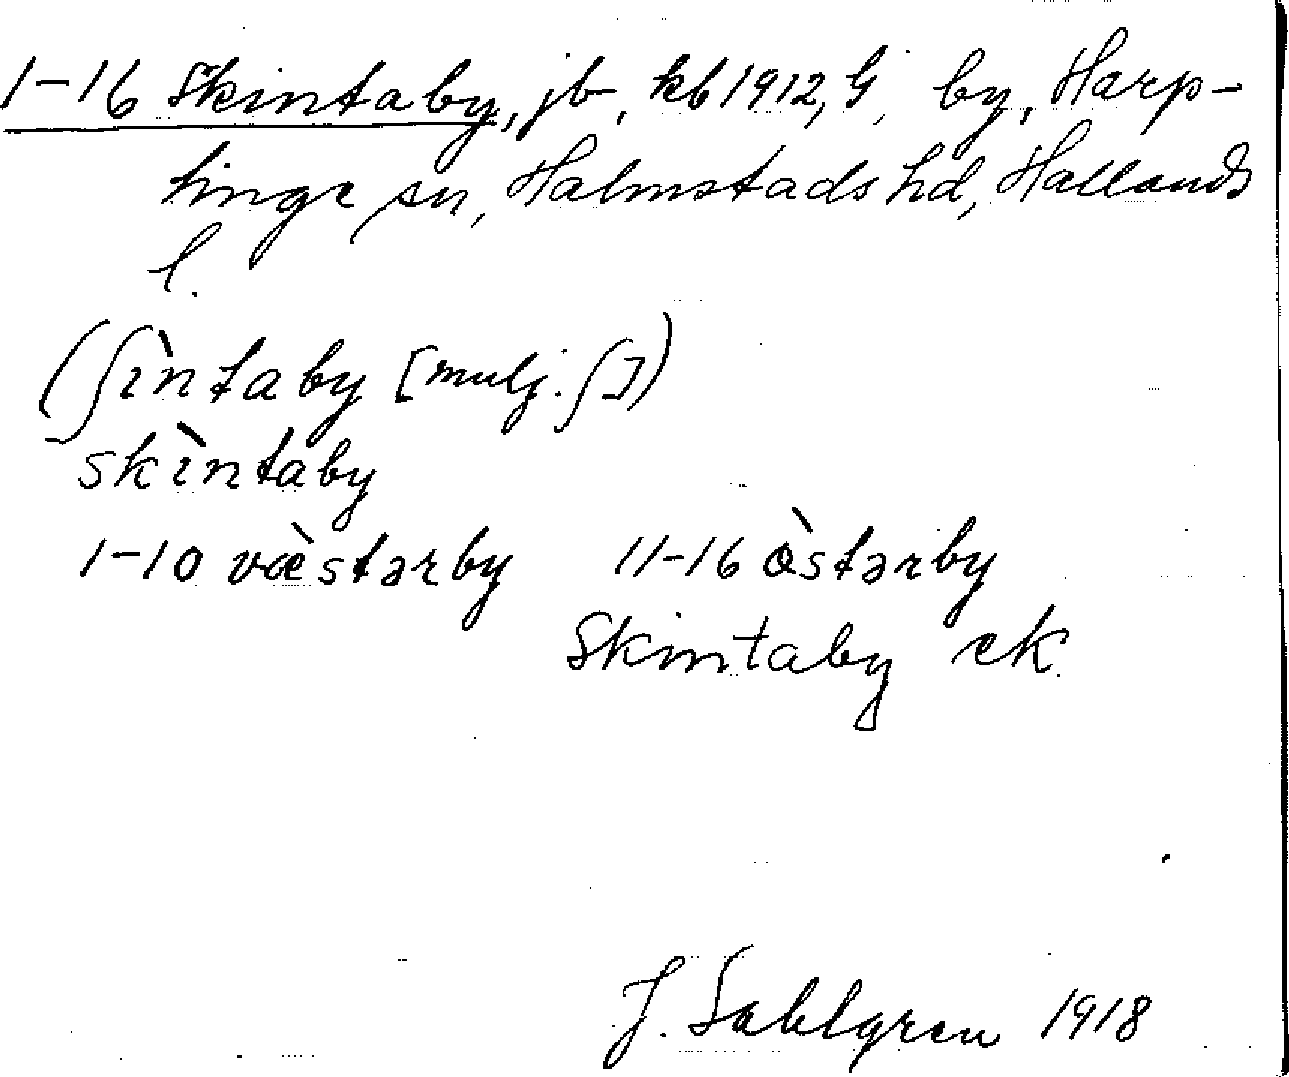 1-16 Skintaby, jb, kb 1912, G, by, Harp-
linge sn, Halmstads hd, Hallands
l.
(ʃìntaby [mulj. ʃ])
skìntaby
1-10 væ̀stərby 11-16 ö̀stərby
Skintaby ek.
J. Sahlgren 1918